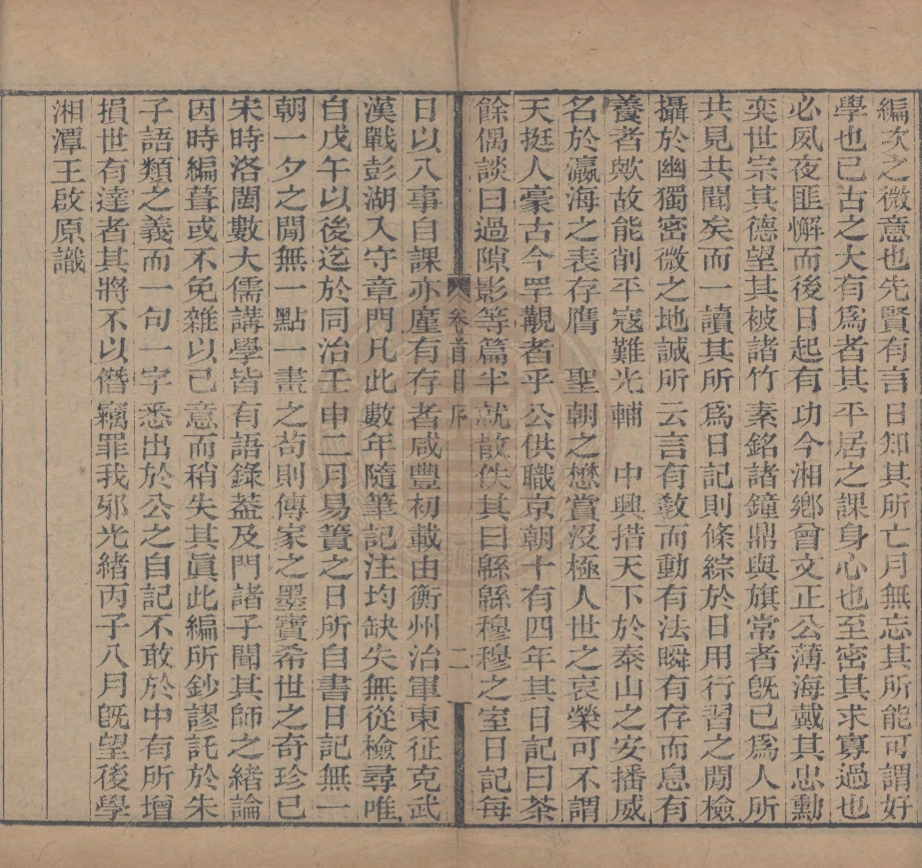 編次之微意也先賢有言日知其所亡月無忘其所能可謂好
學也已古之大有爲者其平居之課身心也至密其求寡過也
必夙夜匪懈而後日起有功今湘鄉曾文正公薄海戴其忠勳
奕世宗其德望其被諸竹素銘諸鐘鼎與旗常者旣已爲人所
共見共聞矣而一讀其所爲日記則條綜於日用行習之閒檢
攝於幽獨密微之地誠所云言有敎而動有法瞬有存而息有
養者歟故能削平寇難光輔　中興措天下於泰山之安播威
名於瀛海之表存膺　聖朝之懋賞沒極人世之哀榮可不謂
天挺人豪古今罕覯者乎公供職京朝十有四年其日記曰茶
餘偶談曰過隙影等篇半就散佚其曰緜緜穆穆之室日記每
卷首目序　二
日以八事自課亦廑有存者咸豐初載由衡州治軍東征克武
漢戰彭湖入守章門凡此數年隨筆記注均缺失無從檢尋唯
自戊午以後迄於同治壬申二月易簀之日所自書日記無一
朝一夕之閒無一點一畫之苟則傳家之墨寶希世之奇珍已
宋時洛閩數大儒講學皆有語錄葢及門諸子聞其師之緒論
因時編葺或不免雜以已意而稍失其眞此編所鈔謬託於朱
子語類之義而一句一字悉出於公之自記不敢於中有所增
損世有達者其將不以僭竊罪我邪光緒丙子八月旣望後學
湘潭王啟原識